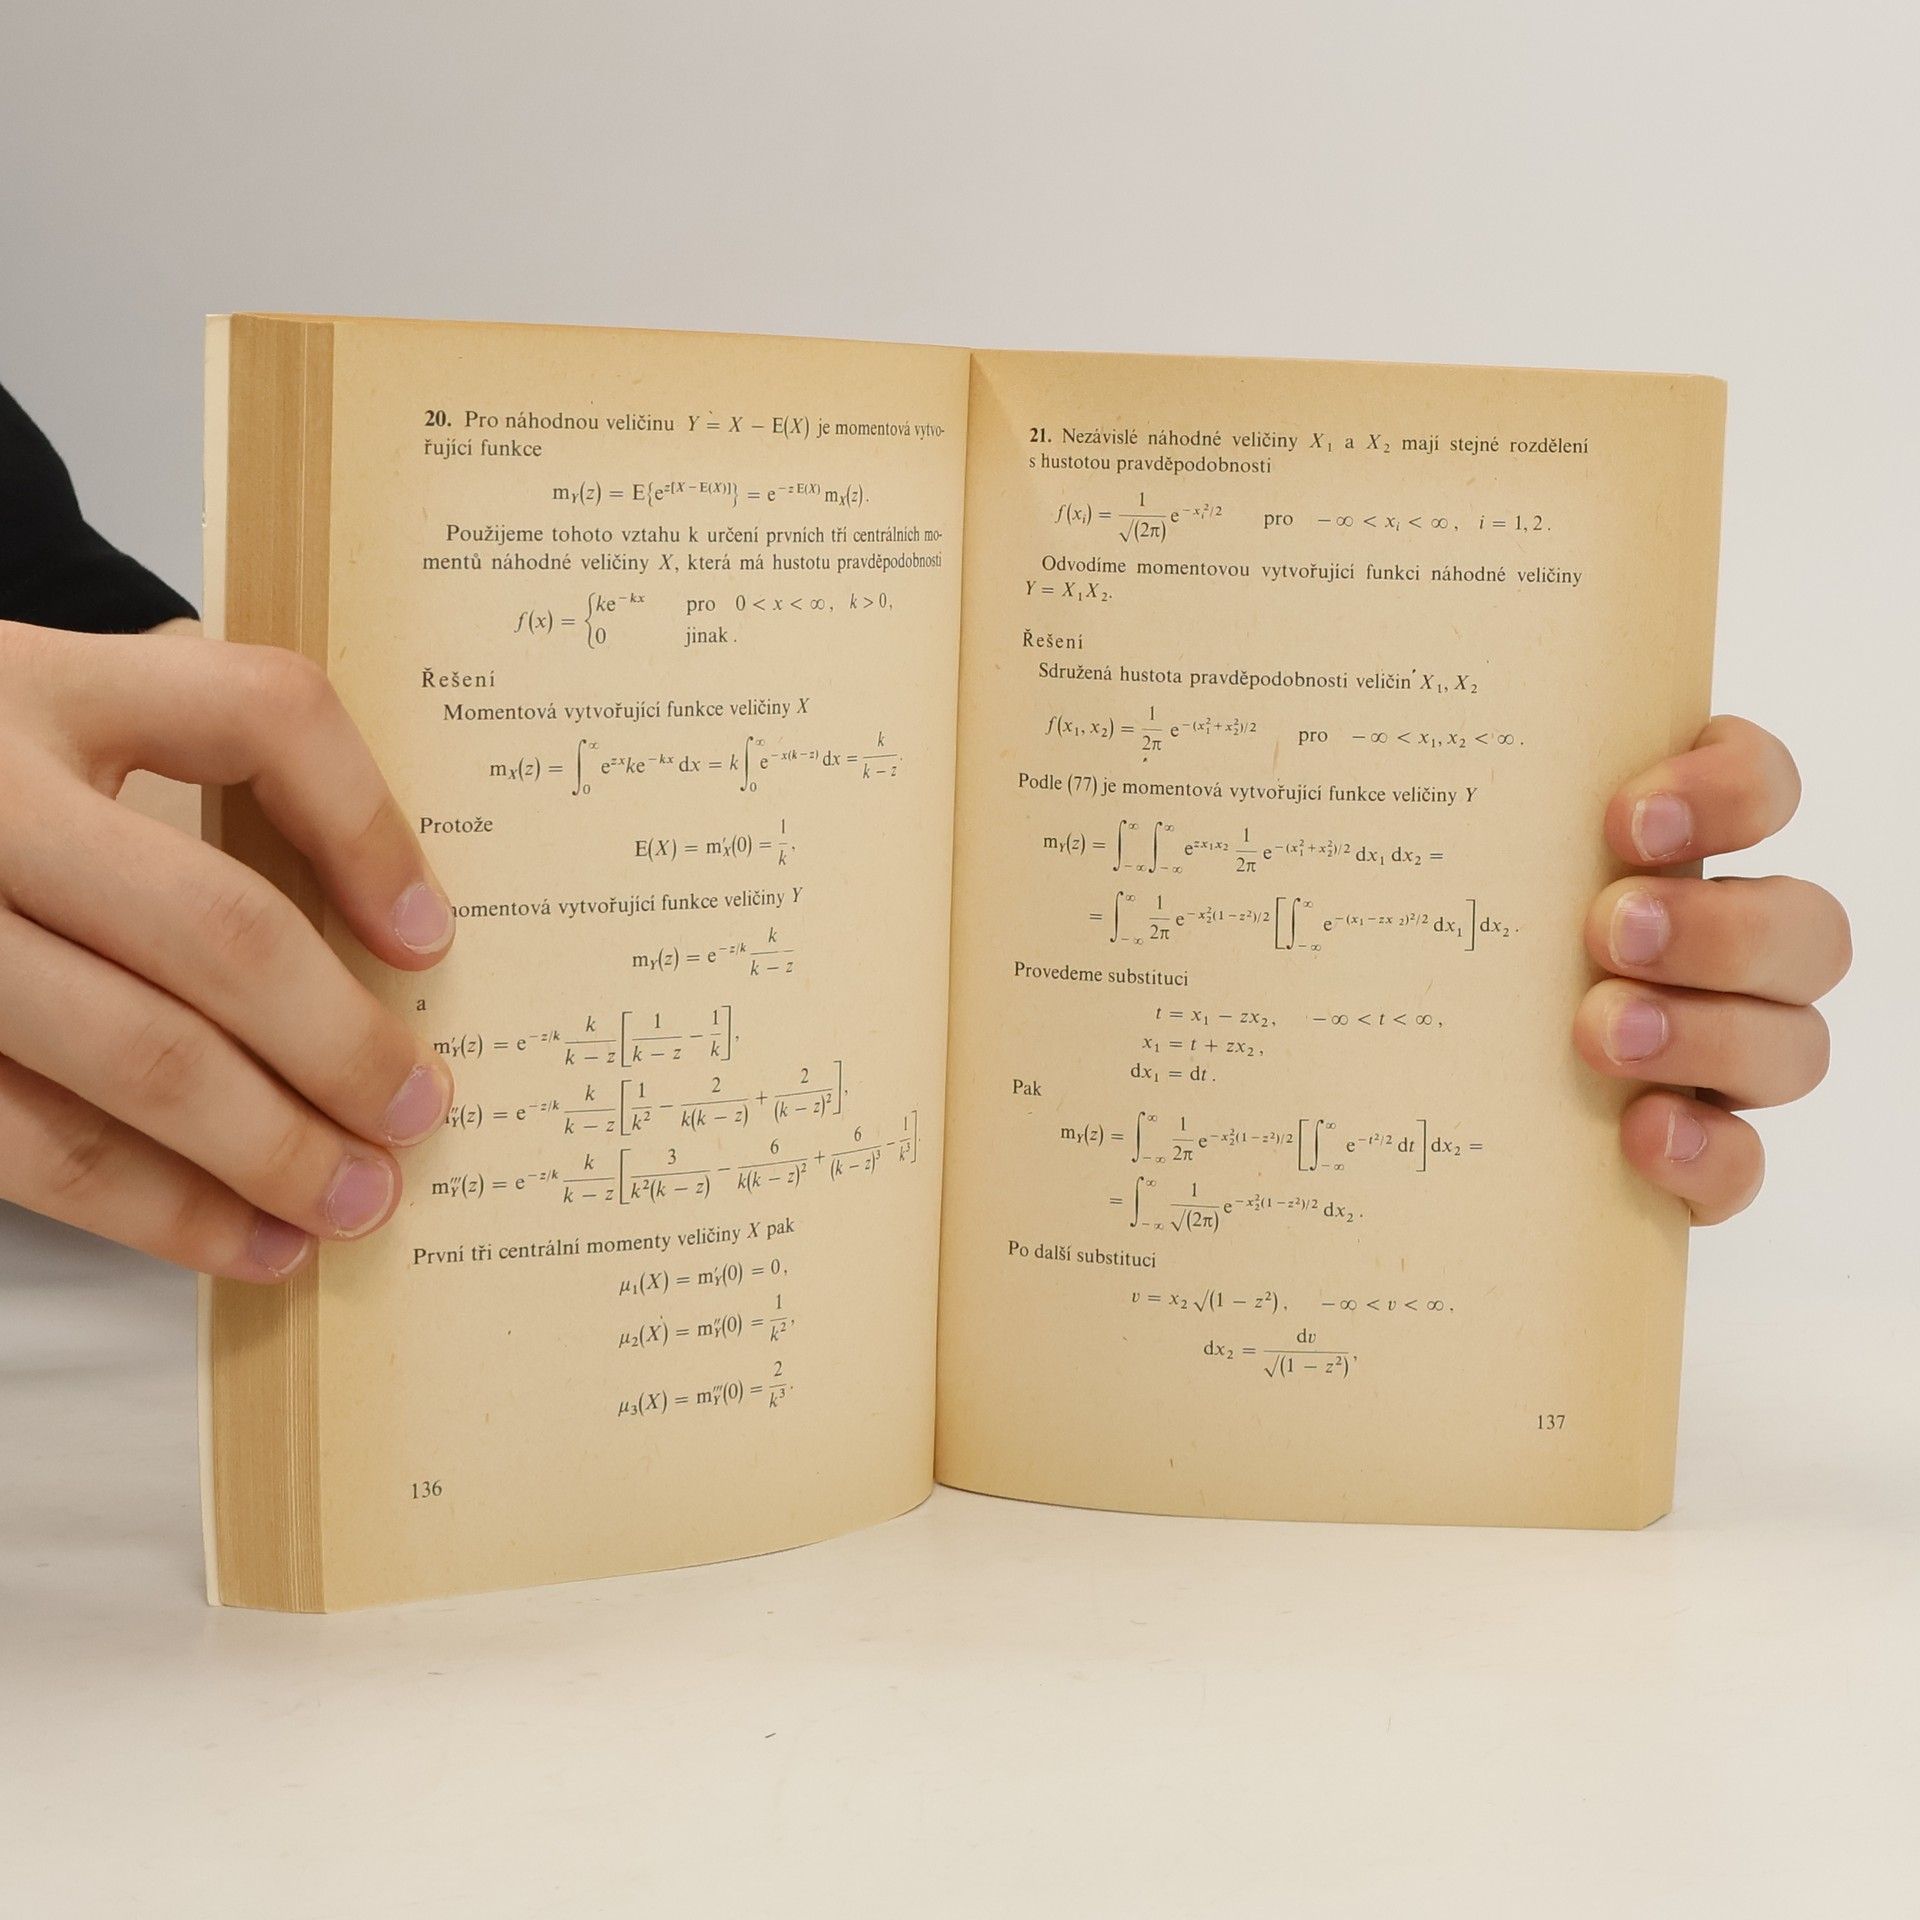 20. Pro náhodnou veličinu Y = X − E(X) je momentová vytvo-
řující funkce
m_Y(z) = E{e^{z[X − E(X)]}} = e^{−z E(X)} m_X(z).
Použijeme tohoto vztahu k určení prvních tří centrálních mo-
mentů náhodné veličiny X, která má hustotu pravděpodobnosti
f(x) = { ke^{−kx} pro 0 < x < ∞, k > 0,
0 jinak.
Řešení
Momentová vytvořující funkce veličiny X
m_X(z) = ∫_0^∞ e^{zx} ke^{−kx} dx = k ∫_0^∞ e^{−x(k−z)} dx = k/(k − z).
Protože
E(X) = m′_X(0) = 1/k,
momentová vytvořující funkce veličiny Y
m_Y(z) = e^{−z/k} k/(k − z)
a
m′_Y(z) = e^{−z/k} k/(k − z) [1/(k − z) − 1/k],
m″_Y(z) = e^{−z/k} k/(k − z) [1/k² − 2/(k(k − z)) + 2/(k − z)²],
m‴_Y(z) = e^{−z/k} k/(k − z) [3/(k²(k − z)) − 6/(k(k − z)²) + 6/(k − z)³ − 1/k³].
První tři centrální momenty veličiny X pak
μ₁(X) = m′_Y(0) = 0,
μ₂(X) = m″_Y(0) = 1/k²,
μ₃(X) = m‴_Y(0) = 2/k³.
136
21. Nezávislé náhodné veličiny X₁ a X₂ mají stejné rozdělení
s hustotou pravděpodobnosti
f(x_i) = 1/√(2π) e^{−x_i²/2} pro −∞ < x_i < ∞, i = 1, 2.
Odvodíme momentovou vytvořující funkci náhodné veličiny
Y = X₁X₂.
Řešení
Sdružená hustota pravděpodobnosti veličin X₁, X₂
f(x₁, x₂) = 1/2π e^{−(x₁² + x₂²)/2} pro −∞ < x₁, x₂ < ∞.
Podle (77) je momentová vytvořující funkce veličiny Y
m_Y(z) = ∫_{−∞}^∞ ∫_{−∞}^∞ e^{zx₁x₂} 1/2π e^{−(x₁² + x₂²)/2} dx₁ dx₂ =
= ∫_{−∞}^∞ 1/2π e^{−x₂²(1−z²)/2} [∫_{−∞}^∞ e^{−(x₁−zx₂)²/2} dx₁] dx₂.
Provedeme substituci
t = x₁ − zx₂, −∞ < t < ∞,
x₁ = t + zx₂,
dx₁ = dt.
Pak
m_Y(z) = ∫_{−∞}^∞ 1/2π e^{−x₂²(1−z²)/2} [∫_{−∞}^∞ e^{−t²/2} dt] dx₂ =
= ∫_{−∞}^∞ 1/√(2π) e^{−x₂²(1−z²)/2} dx₂.
Po další substituci
v = x₂ √(1 − z²), −∞ < v < ∞,
dx₂ = dv/√(1 − z²),
137